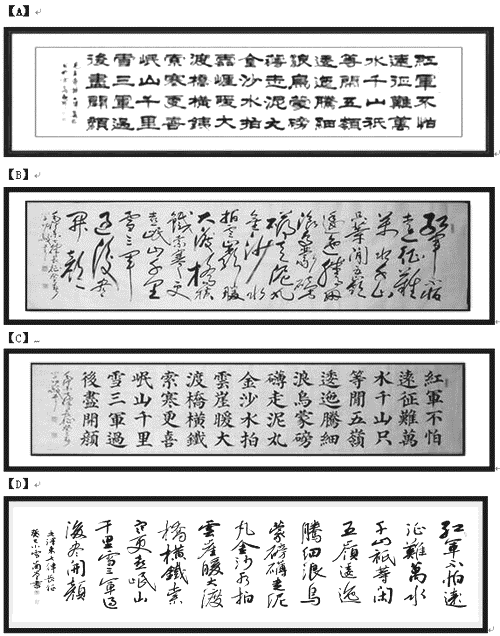 【A】
紅軍不怕
遠征難萬
水千山祇
等閒五嶺
逶迤騰細
浪烏蒙磅
礴走泥丸
金沙水拍
雲崖暖大
渡橋橫鐵
索寒更喜
岷山千里
雪三軍過
後盡開顏
【B】
紅軍不怕
遠征難
萬水千山
只等閒五嶺
逶迤騰細
浪烏蒙磅
礴走泥丸
金沙水
拍雲崖暖
大渡橋橫
鐵索寒更
喜岷山千里
雪三軍
過後盡
開顏
【C】
紅軍不怕
遠征難萬
水千山只
等閒五嶺
逶迤騰細
浪烏蒙磅
礴走泥丸
金沙水拍
雲崖暖大
渡橋橫鐵
索寒更喜
岷山千里
雪三軍過
後盡開顏
【D】
紅軍不怕遠
征難萬水
千山祇等閑
五嶺逶迤
騰細浪烏
蒙磅礴走泥
丸金沙水拍
雲崖暖大渡
橋橫鐵索
寒更喜岷山
千里雪三軍過
後盡開顏
毛澤東七律長征